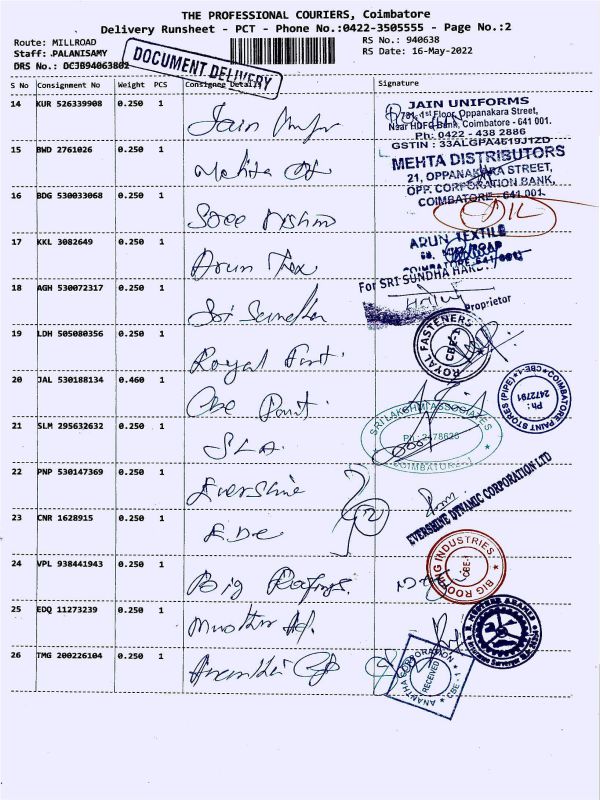 THE PROFESSIONAL COURIERS, Coimbatore
Delivery Runsheet - PCT - Phone No.:0422-3505555 - Page No.:2
Route: MILLROAD
Staff: PALANISAMY
DRS No.: DCJB94063802
DOCUMENT DELIVERY
RS No.: 940638
RS Date: 16-May-2022
S No Consignment No Weight PCS Consignee Details Signature
14 KUR 526339908 0.250 1
JAIN UNIFORMS
1st Floor, Oppanakara Street,
Near HDFC Bank, Coimbatore - 641 001.
Ph: 0422 - 438 2886
GSTIN : 33ALGPA4619J1ZD
15 BWD 2761026 0.250 1 Mehta
MEHTA DISTRIBUTORS
21, OPPANAKARA STREET,
OPP. CORPORATION BANK,
COIMBATORE - 641 001.
16 BDG 530033068 0.250 1 Sree
17 KKL 3082649 0.250 1 Arun Tex
ARUN TEXTILE
COIMBATORE 641 001
18 AGH 530072317 0.250 1 Sri Sundha
For SRI SUNDHA
Proprietor
19 LDH 505080356 0.250 1 Royal Fast.
ROYAL FASTENERS CBE-1
20 JAL 530188134 0.460 1 Cbe Paint.
COIMBATORE PAINT STORES (PIPE) CBE-1
Ph : 2472791
21 SLM 295632632 0.250 1 SLA.
SRI LAKSHMI ASSOCIATES
Ph : 2478625
COIMBATORE-1
22 PNP 530147369 0.250 1 Evershine
EVERSHINE DYNAMIC CORPORATION LTD
23 CNR 1628915 0.250 1 EDC
24 VPL 938441943 0.250 1 Big Roofings.
BIG ROOFING INDUSTRIES CBE-1
25 EDQ 11273239 0.250 1
26 TMG 200226104 0.250 1
ANANTHA CORPORATION CBE - 1
RECEIVED